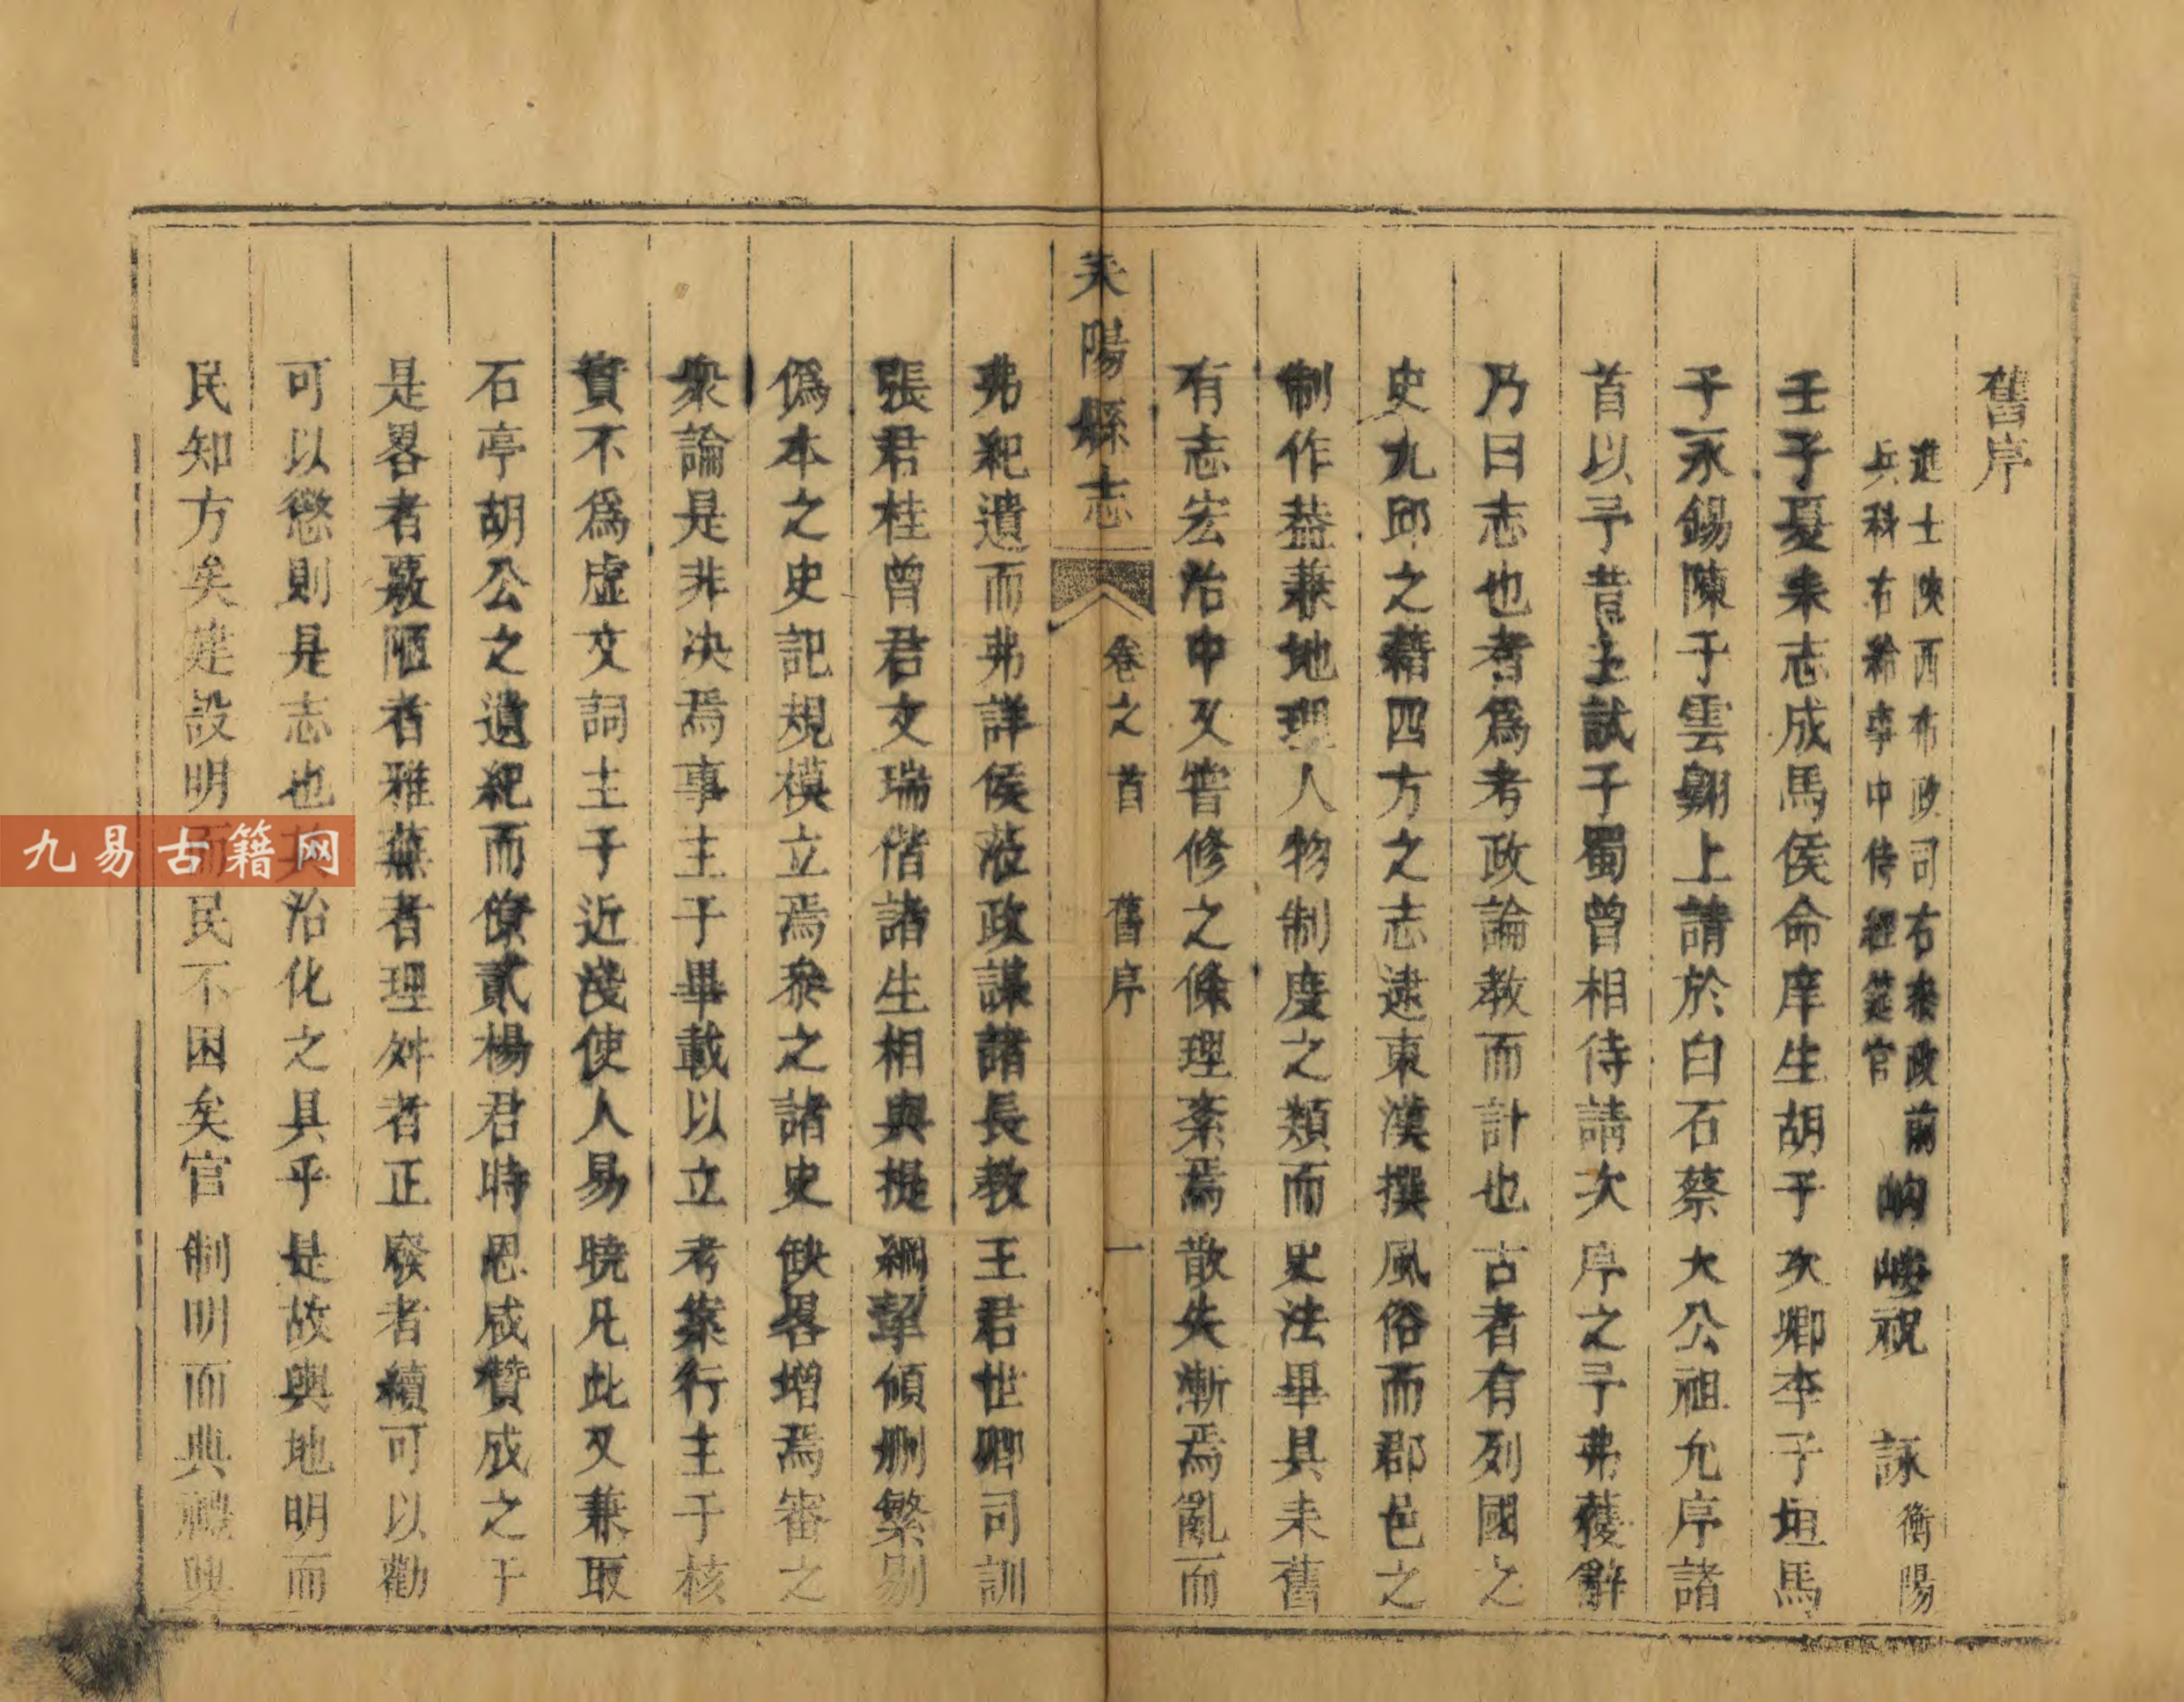 舊序
進士陝西布政司右叅政前
兵科右給事中侍經筵官
岣嶁祝 詠衡陽
壬子夏耒志成馬侯命庠生胡子次卿李子垣馬
子永錫陳子雲翺上請於白石蔡大公祖允序諸
首以予昔主試于蜀曾相待請次序之予弗獲辭
乃曰志也者爲考政論教而計也古者有列國之
史九邱之藉四方之志逮東漢撰風俗而郡邑之
制作葢兼地理人物制度之類而史法畢具耒舊
有志宏治中又嘗修之條理紊焉散失漸焉亂而
弗紀遺而弗詳侯蒞政謀諸長教王君世卿司訓
張君桂曾君文瑞偕諸生相與提綱挈傾刪繁剔
僞本之史記規模立焉叅之諸史缺畧增焉審之
衆論是非决焉事主于畢載以立考案行主于核
實不爲虛文詞主于近淺使人易曉凡此又兼取
石亭胡公之遺紀而僚貳楊君時思咸贊成之于
是畧者覈陋者雅蕪者理舛者正廢者續可以勸
可以懲則是志也其治化之具乎是故輿地明而
民知方矣建設明而民不困矣官制明而典禮興
耒陽縣志 卷之首 舊序 一
九易古籍网